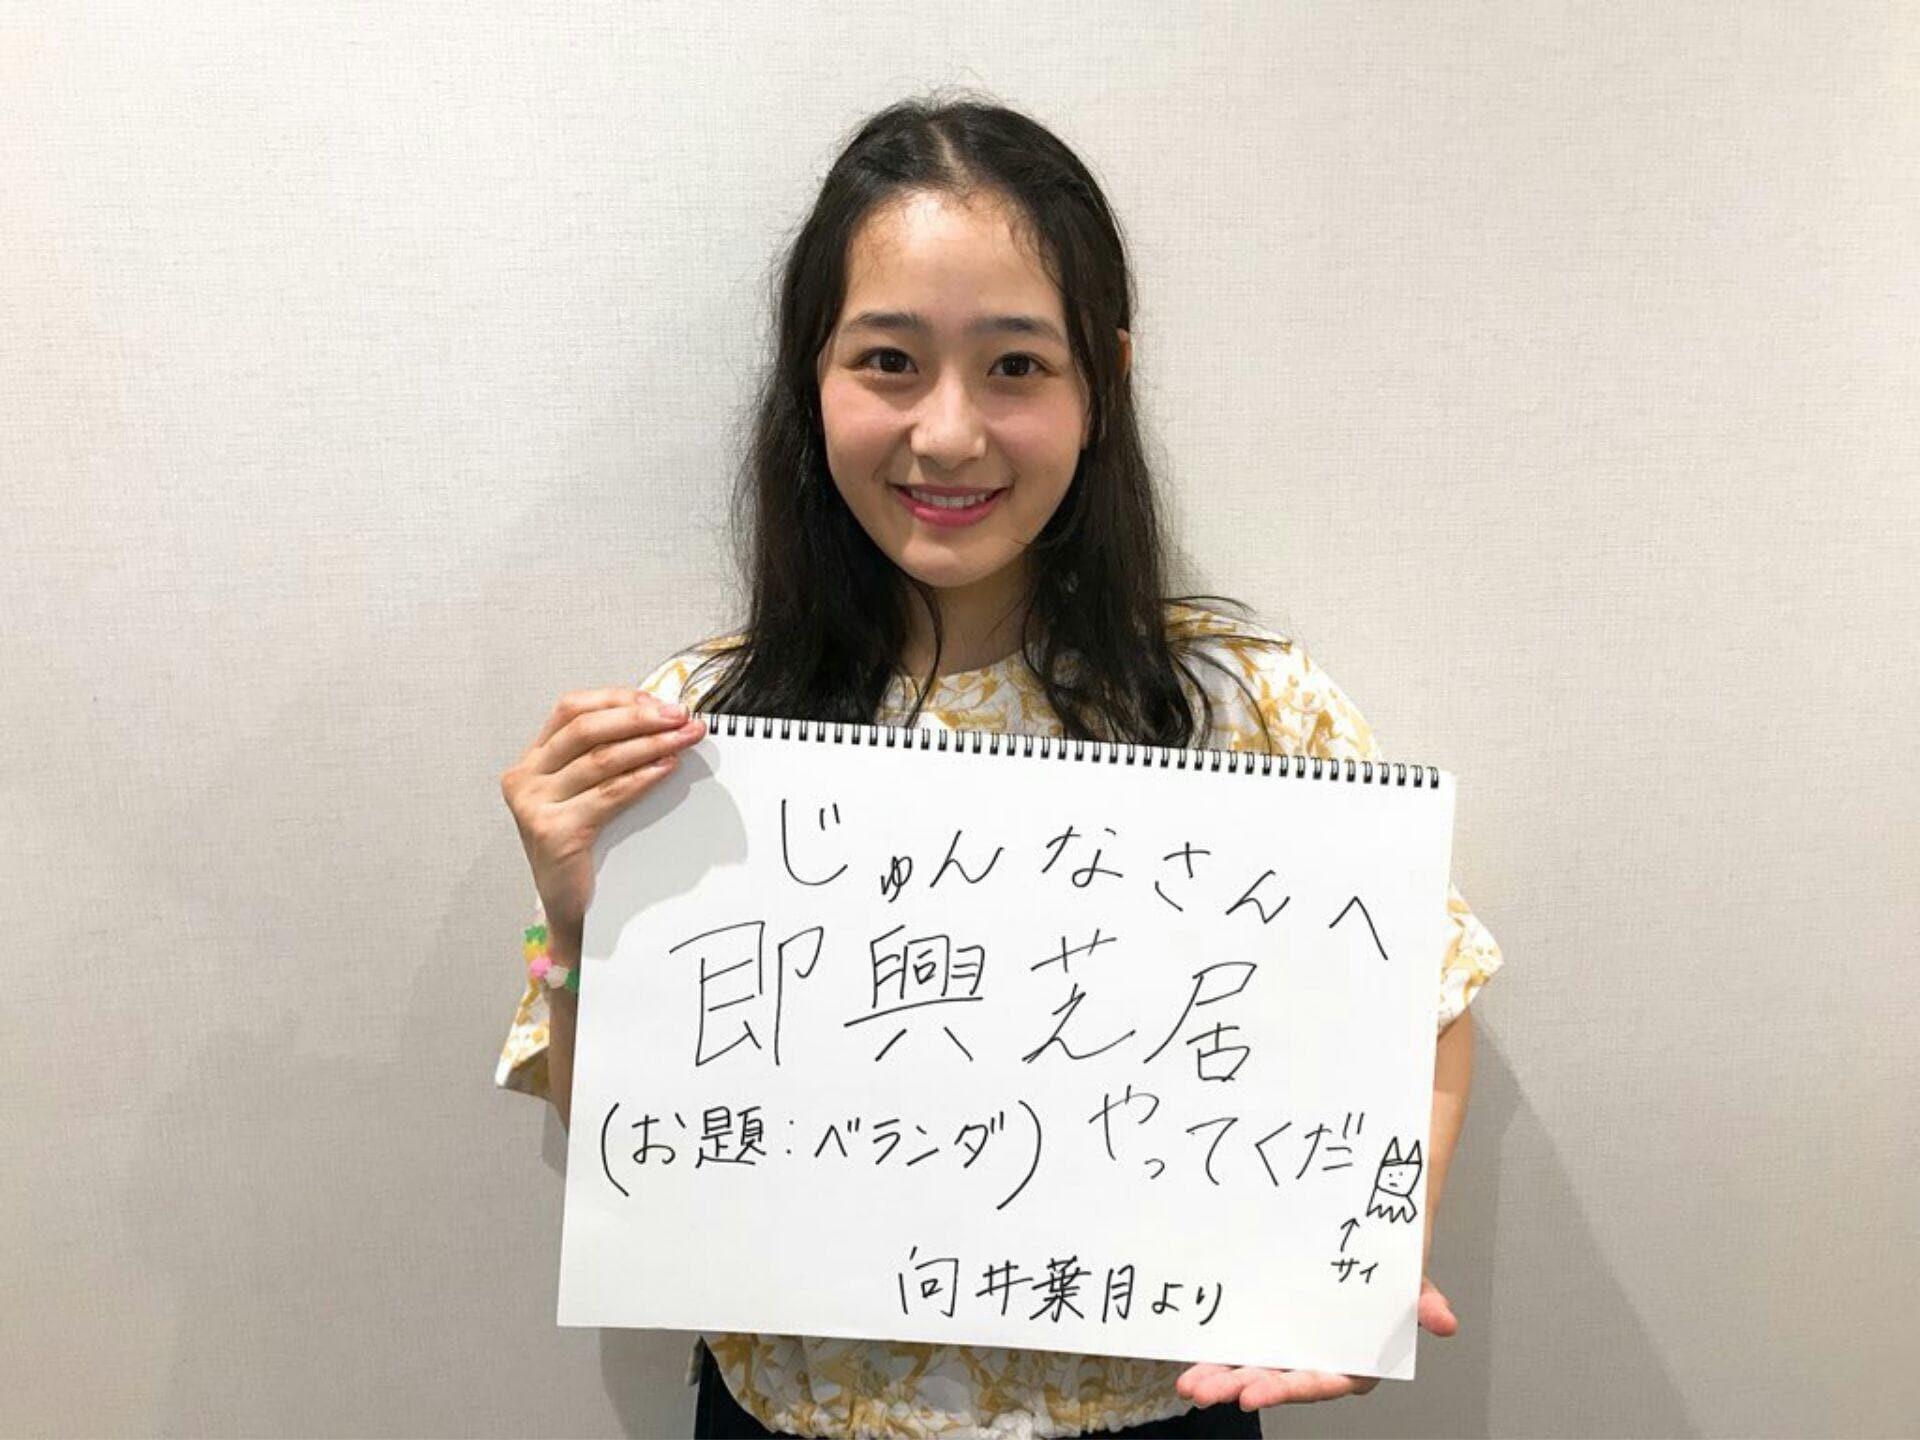 じゅんなさんへ
即興芝居
(お題:ベランダ)やってくだ
↑
サイ
向井葉月より